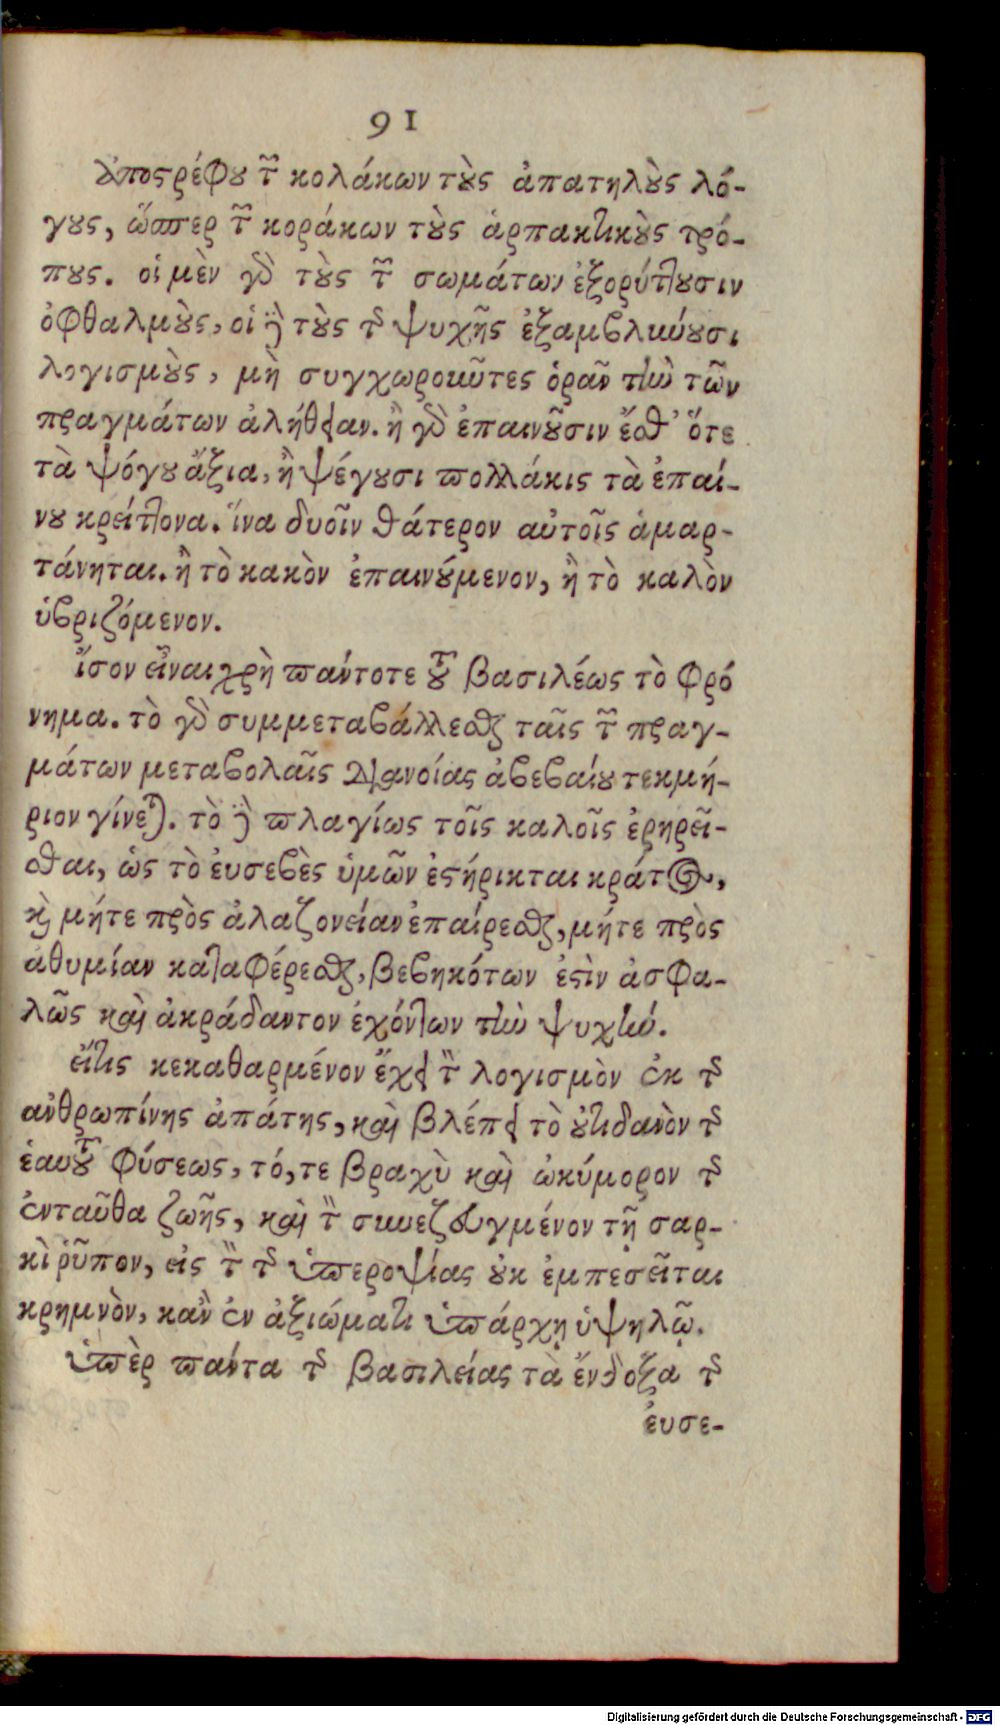 91
Ἀποστρέφου τῶν κολάκων τοὺς ἀπατηλοὺς λό-
γους, ὥσπερ τῶν κοράκων τοὺς ἁρπακτικοὺς τρό-
πους. οἱ μὲν γὰρ τοὺς τῶν σωμάτων ἐξορύττουσιν
ὀφθαλμοὺς, οἱ δὲ τοὺς τῆς ψυχῆς ἐξαμβλύνουσι
λογισμοὺς, μὴ συγχωροῦντες ὁρᾶν τὴν τῶν
πραγμάτων ἀλήθειαν. ἢ γὰρ ἐπαινοῦσιν ἔσθ’ ὅτε
τὰ ψόγου ἄξια, ἢ ψέγουσι πολλάκις τὰ ἐπαί-
νου κρείττονα. ἵνα δυοῖν θάτερον αὐτοῖς ἁμαρ-
τάνηται. ἢ τὸ κακὸν ἐπαινούμενον, ἢ τὸ καλὸν
ὑβριζόμενον.
ἴσον εἶναι χρὴ πάντοτε τοῦ βασιλέως τὸ φρό
νημα. τὸ γὰρ συμμεταβάλλεσθαι ταῖς τῶν πραγ-
μάτων μεταβολαῖς διανοίας ἀβεβαίου τεκμή-
ριον γίνεται. τὸ δὲ πλαγίως τοῖς καλοῖς ἐρηρεῖ-
σθαι, ὡς τὸ ἐυσεβὲς ὑμῶν ἐστήρικται κράτος,
καὶ μήτε πρὸς ἀλαζονείαν ἐπαίρεσθαι, μήτε πρὸς
ἀθυμίαν καταφέρεσθαι, βεβηκότων ἐστὶν ἀσφα-
λῶς καὶ ἀκράδαντον ἐχόντων τὴν ψυχήν.
εἴτις κεκαθαρμένον ἔχει τὸν λογισμὸν ἐκ τῆς
ἀνθρωπίνης ἀπάτης, καὶ βλέπει τὸ οὐτιδανὸν τῆς
ἑαυτοῦ φύσεως, τό, τε βραχὺ καὶ ὠκύμορον τῆς
ἐνταῦθα ζωῆς, καὶ τὸν συνεζευγμένον τῇ σαρ-
κὶ ῥῦπον, εἰς τὸν τῆς ὑπεροψίας οὐκ ἐμπεσεῖται
κρημνὸν, κἂν ἐν ἀξιώματι ὑπάρχῃ ὑψηλῷ.
ὑπὲρ πάντα τῆς βασιλείας τὰ ἔνδοξα τῆς
ἐυσε-
Digitalisierung gefördert durch die Deutsche Forschungsgemeinschaft - DFG